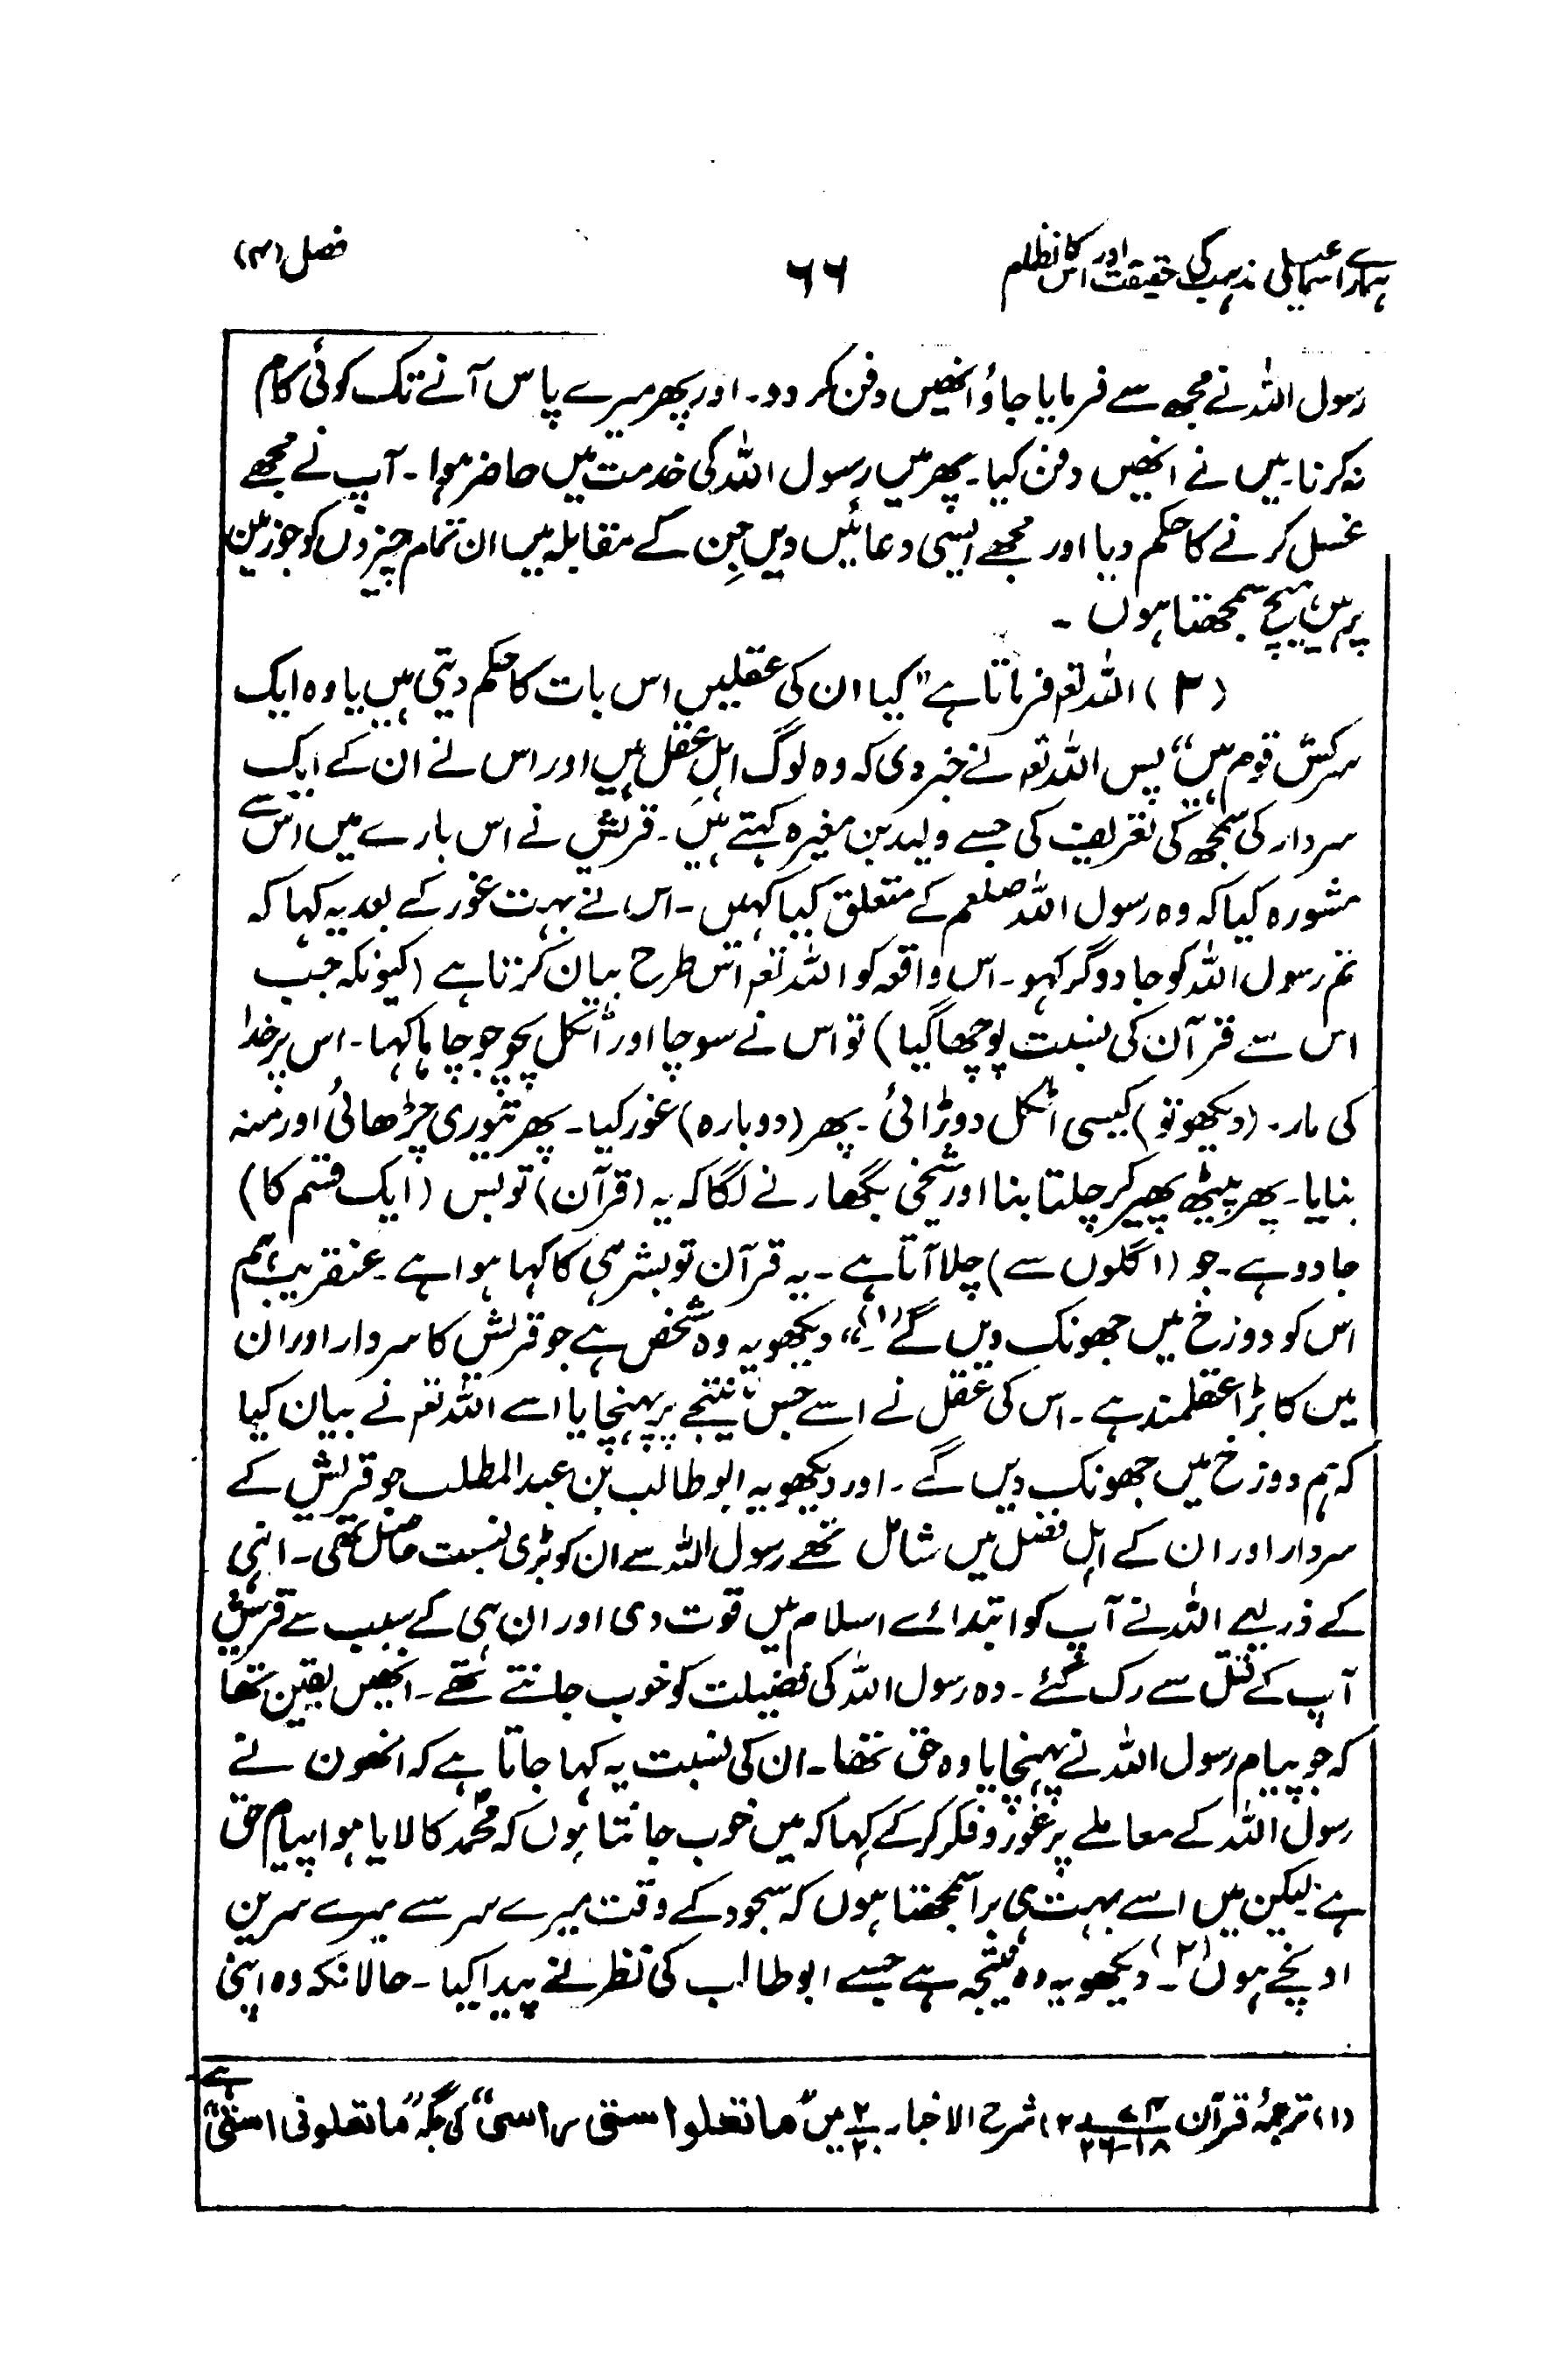 ہمارے اسماعیلی مذہب کی حقیقت اور اس کا نظام
۶۶
فصل (۴)
رسول اللہ نے مجھ سے فرمایا جاؤ انھیں دفن کر دو۔ اور پھر میرے پاس آنے تک کوئی کام
نہ کرنا۔ میں نے انھیں دفن کیا۔ پھر میں رسول اللہ کی خدمت میں حاضر ہوا۔ آپ نے مجھے
غسل کرنے کا حکم دیا اور مجھے ایسی دعائیں دیں جِن کے مقابلہ میں ان تمام چیزوں کو جو زمین
پر ہیں ہیچ سمجھتا ہوں ۔
(۳) اللہ تعہ فرماتا ہے "کیا ان کی عقلیں اس بات کا حکم دیتی ہیں یا وہ ایک
سرکش قوم ہیں" پس اللہ تعہ نے خبر دی کہ وہ لوگ اہلِ عقل ہیں اور اس نے ان کے ایک
سردار کی سمجھ کی تعریف کی جسے ولید بن مغیرہ کہتے ہیں۔ قریش نے اس بارے میں اس سے
مشورہ کیا کہ وہ رسول اللہ صلعم کے متعلق کیا کہیں۔ اس نے بہت غور کے بعد یہ کہا کہ
تم رسول اللہ کو جادوگر کہو۔ اس واقعہ کو اللہ تعہ اس طرح بیان کرتا ہے (کیونکہ جب
اس سے قرآن کی نسبت پوچھا گیا) تو اس نے سوچا اور اٹکل پچو جو چاہا کہا۔ اس پر خدا
کی مار۔ (دیکھو تو) کیسی اٹکل دوڑائی ۔ پھر (دوبارہ) غور کیا۔ پھر تیوری چڑھائی اور منہ
بنایا۔ پھر پیٹھ پھیر کر چلتا بنا اور شیخی بگھارنے لگا کہ یہ (قرآن) تو بس (ایک قسم کا)
جادو ہے۔ جو (اگلوں سے) چلا آتا ہے ۔ یہ قرآن تو بشر ہی کا کہا ہوا ہے ۔ عنقریب ہم
اس کو دوزخ میں جھونک دیں گے(۱)۔" دیکھو یہ وہ شخص ہے جو قریش کا سردار اور ان
میں کا بڑا عقلمند ہے ۔ اس کی عقل نے اسے جس نتیجے پر پہنچایا اسے اللہ تعہ نے بیان کیا
کہ ہم دوزخ میں جھونک دیں گے ۔ اور دیکھو یہ ابو طالب بن عبد المطلب جو قریش کے
سردار اور ان کے اہلِ فضل میں شامل تھے رسول اللہ سے ان کو بڑی نسبت حاصل تھی۔ انہی
کے ذریعے اللہ نے آپ کو ابتدائے اسلام میں قوت دی اور ان ہی کے سبب سے قریش
آپ کے قتل سے رک گئے ۔ وہ رسول اللہ کی فضیلت کو خوب جانتے تھے ۔ انھیں یقین تھا
کہ جو پیام رسول اللہ نے پہنچایا وہ حق تھا۔ ان کی نسبت یہ کہا جاتا ہے کہ انھون نے
رسول اللہ کے معاملے پر غور و فکر کر کے کہا کہ میں خوب جانتا ہوں کہ محمّد کا لایا ہوا پیام حق
ہے لیکن میں اسے بہت ہی برا سمجھتا ہوں کہ سجود کے وقت میرے سر سے میرے سرین
اونچے ہوں(۲)۔ دیکھو یہ وہ نتیجہ ہے جسے ابو طالب کی نظر نے پیدا کیا۔ حالانکہ وہ اپنی
(۱) ترجمۂ قرآن ۷۴/۱۸-۲۶ (۲) شرح الاخبار ۲/۲۰ میں "ما تعلوا ستی راسی" کی جگہ "ما تعلونی استی" ہے